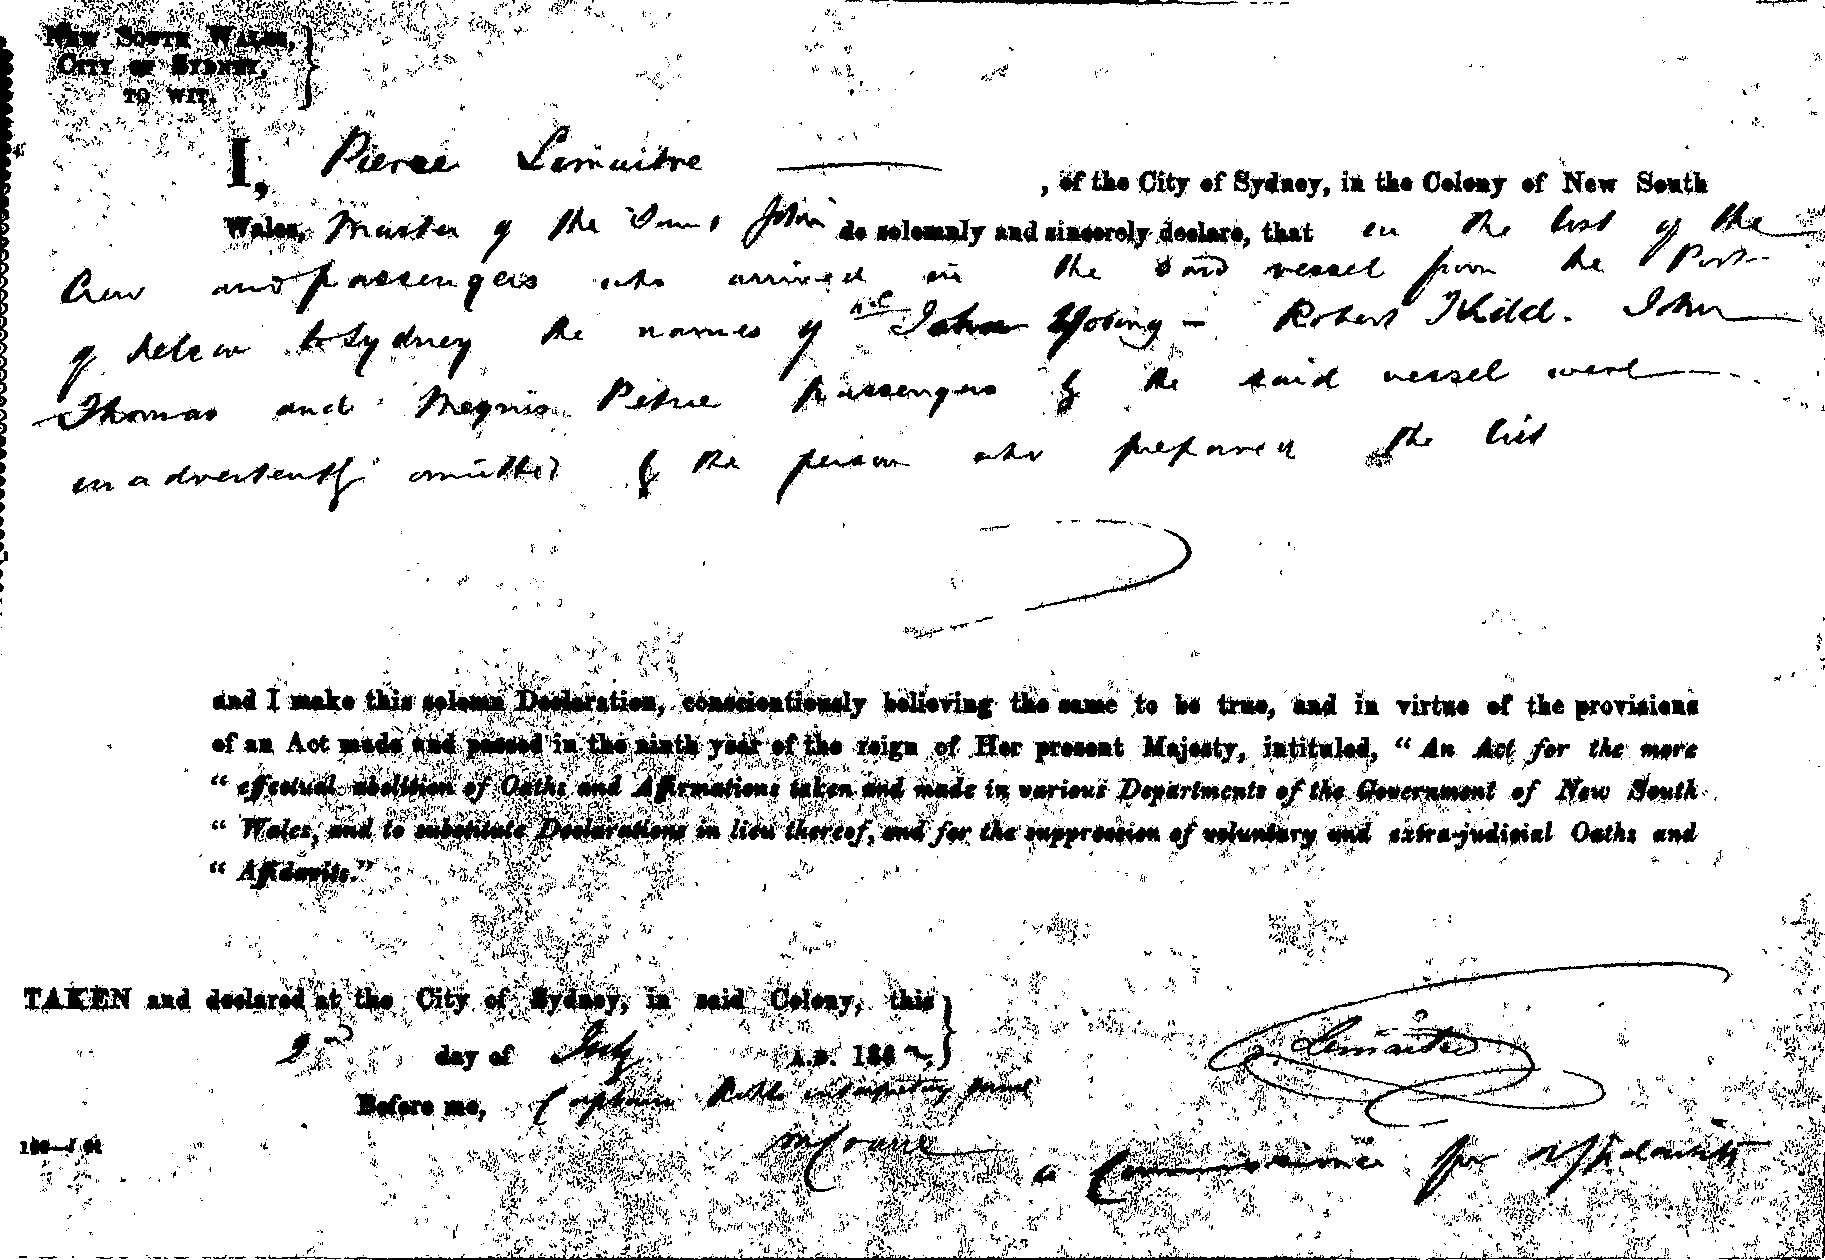 NEW SOUTH WALES,
CITY OF SYDNEY,
TO WIT.
I, Pierre Lemaitre , of the City of Sydney, in the Colony of New South
Wales, Master of the John do solemnly and sincerely declare, that in the list of the
Crew and passengers who arrived in the said vessel from the Port
of Nelson to Sydney the names of John Young - Robert Kidd. John
Thomas and Magnis Petrie passengers by the said vessel were
inadvertently omitted by the person who prepared the list
and I make this solemn Declaration, conscientiously believing the same to be true, and in virtue of the provisions
of an Act made and passed in the ninth year of the reign of Her present Majesty, intituled, “An Act for the more
“ effectual abolition of Oaths and Affirmations taken and made in various Departments of the Government of New South
“ Wales, and to substitute Declarations in lieu thereof, and for the suppression of voluntary and extra-judicial Oaths and
“ Affidavits.”
TAKEN and declared at the City of Sydney, in said Colony, this
2nd day of July A.D. 186
Lemaitre
Before me,
a Commissioner for Affidavits